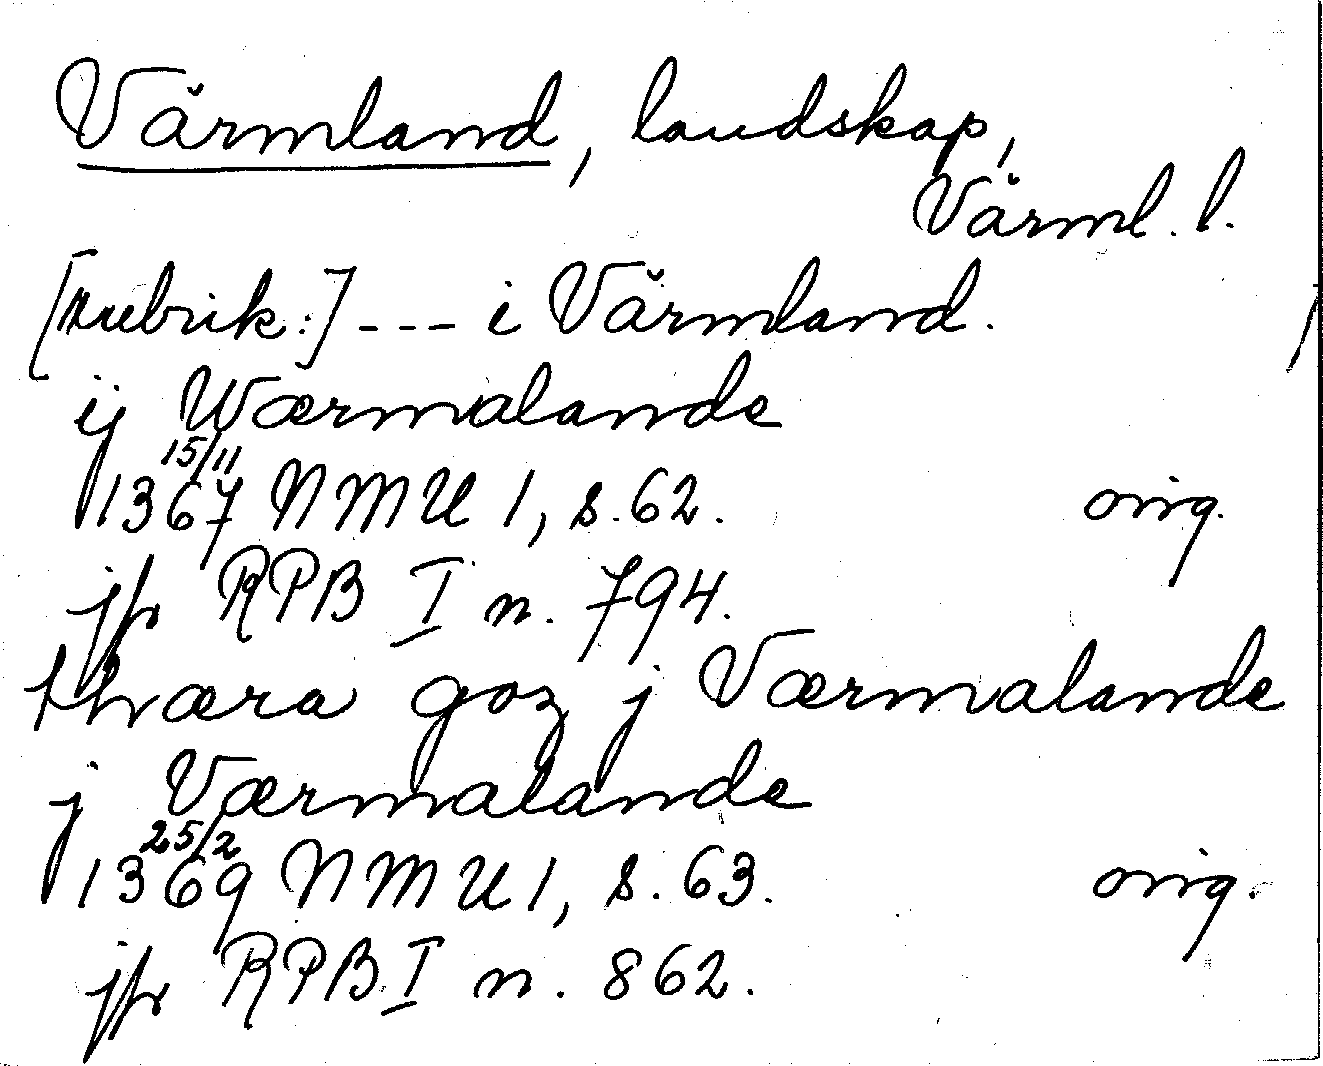 Värmland, landskap,
Värml. l.
[rubrik:] --- i Värmland.
ij Wærmalande
15/11
1367 NMU 1, s. 62. orig.
jfr RPB I n. 794.
thræra goz j Værmalande
j Værmalande
25/2
1369 NMU 1, s. 63. orig.
jfr RPB I n. 862.